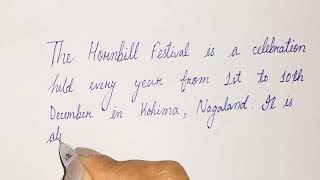 The Hornbill Festival is a celebration
held every year from 1st to 10th
December in Kohima, Nagaland. It is